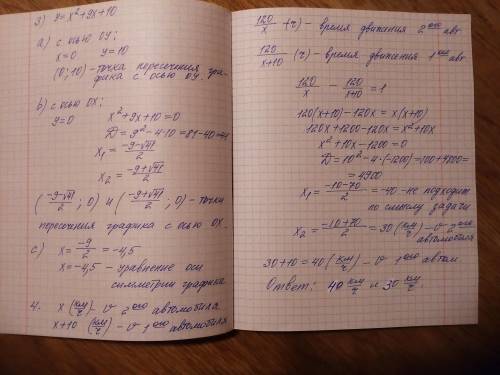 3) y = x² + 9x + 10
a) с осью OY:
x=0 y=10
(0;10) - точка пересечения гра-
фика с осью OY.
b) с осью OX:
y=0 x² + 9x + 10 = 0
D = 9² - 4·10 = 81 - 40 = 41
x₁ = (-9-√41)/2
x₂ = (-9+√41)/2
((-9-√41)/2; 0) и ((-9+√41)/2; 0) - точки
пересечения графика с осью OX.
c) x = -9/2 = -4,5
x = -4,5 - уравнение оси
симметрии графика
4. x (км/ч) - v 2ого автомобиля
x+10 (км/ч) - v 1ого автомобиля
120/x (ч) - время движения 2ого авт.
120/(x+10) (ч) - время движения 1ого авт
120/x - 120/(x+10) = 1
120(x+10) - 120x = x(x+10)
120x + 1200 - 120x = x² + 10x
x² + 10x - 1200 = 0
D = 10² - 4·(-1200) = 100 + 4800 =
= 4900
x₁ = (-10-70)/2 = -40 - не подходит
по смыслу задачи
x₂ = (-10+70)/2 = 30 (км/ч) - v 2ого
автомобиля
30 + 10 = 40 (км/ч) - v 1ого автом.
Ответ: 40 км/ч и 30 км/ч.